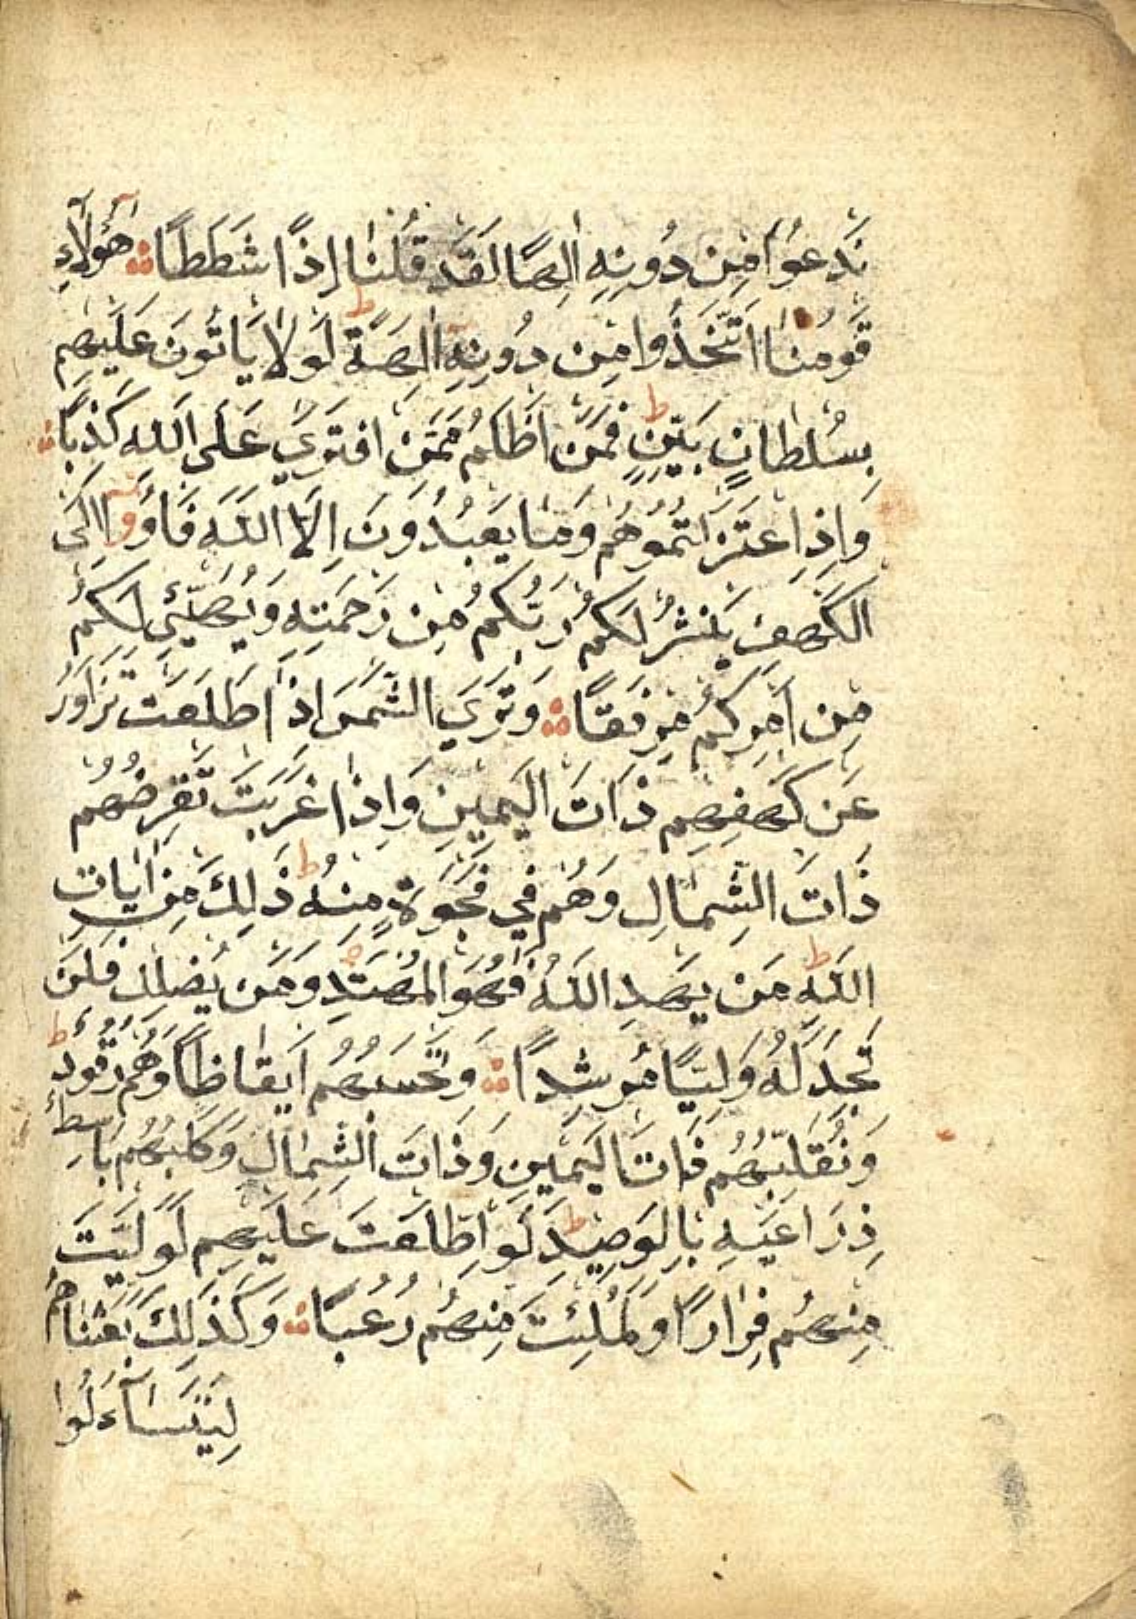 نَدْعُوَا مِنْ دُونِهِ اِلٰهًا لَقَدْ قُلْنَا اِذًا شَطَطًا ۞ هٰٓؤُلَآءِ
قَوْمُنَا اتَّخَذُوا مِنْ دُونِهِٓ اٰلِهَةً ط لَوْلَا يَأْتُونَ عَلَيْهِمْ
بِسُلْطَانٍ بَيِّنٍ ط فَمَنْ اَظْلَمُ مِمَّنِ افْتَرَىٰ عَلَى اللّٰهِ كَذِبًا ۞
وَاِذِ اعْتَزَلْتُمُوهُمْ وَمَا يَعْبُدُونَ اِلَّا اللّٰهَ فَأْوُوا اِلَى
الْكَهْفِ يَنْشُرْ لَكُمْ رَبُّكُمْ مِنْ رَحْمَتِهِ وَيُهَيِّئْ لَكُمْ
مِنْ اَمْرِكُمْ مِرْفَقًا ۞ وَتَرَى الشَّمْسَ اِذَا طَلَعَتْ تَزَاوَرُ
عَنْ كَهْفِهِمْ ذَاتَ الْيَمِينِ وَاِذَا غَرَبَتْ تَقْرِضُهُمْ
ذَاتَ الشِّمَالِ وَهُمْ فِي فَجْوَةٍ مِنْهُ ط ذٰلِكَ مِنْ اٰيَاتِ
اللّٰهِ ط مَنْ يَهْدِ اللّٰهُ فَهُوَ الْمُهْتَدِ وَمَنْ يُضْلِلْ فَلَنْ
تَجِدَ لَهُ وَلِيًّا مُرْشِدًا ۞ وَتَحْسَبُهُمْ اَيْقَاظًا وَهُمْ رُقُودٌ ط
وَنُقَلِّبُهُمْ ذَاتَ الْيَمِينِ وَذَاتَ الشِّمَالِ وَكَلْبُهُمْ بَاسِطٌ
ذِرَاعَيْهِ بِالْوَصِيدِ ط لَوِ اطَّلَعْتَ عَلَيْهِمْ لَوَلَّيْتَ
مِنْهُمْ فِرَارًا وَلَمُلِئْتَ مِنْهُمْ رُعْبًا ۞ وَكَذٰلِكَ بَعَثْنَاهُمْ
لِيَتَسَآءَلُوا